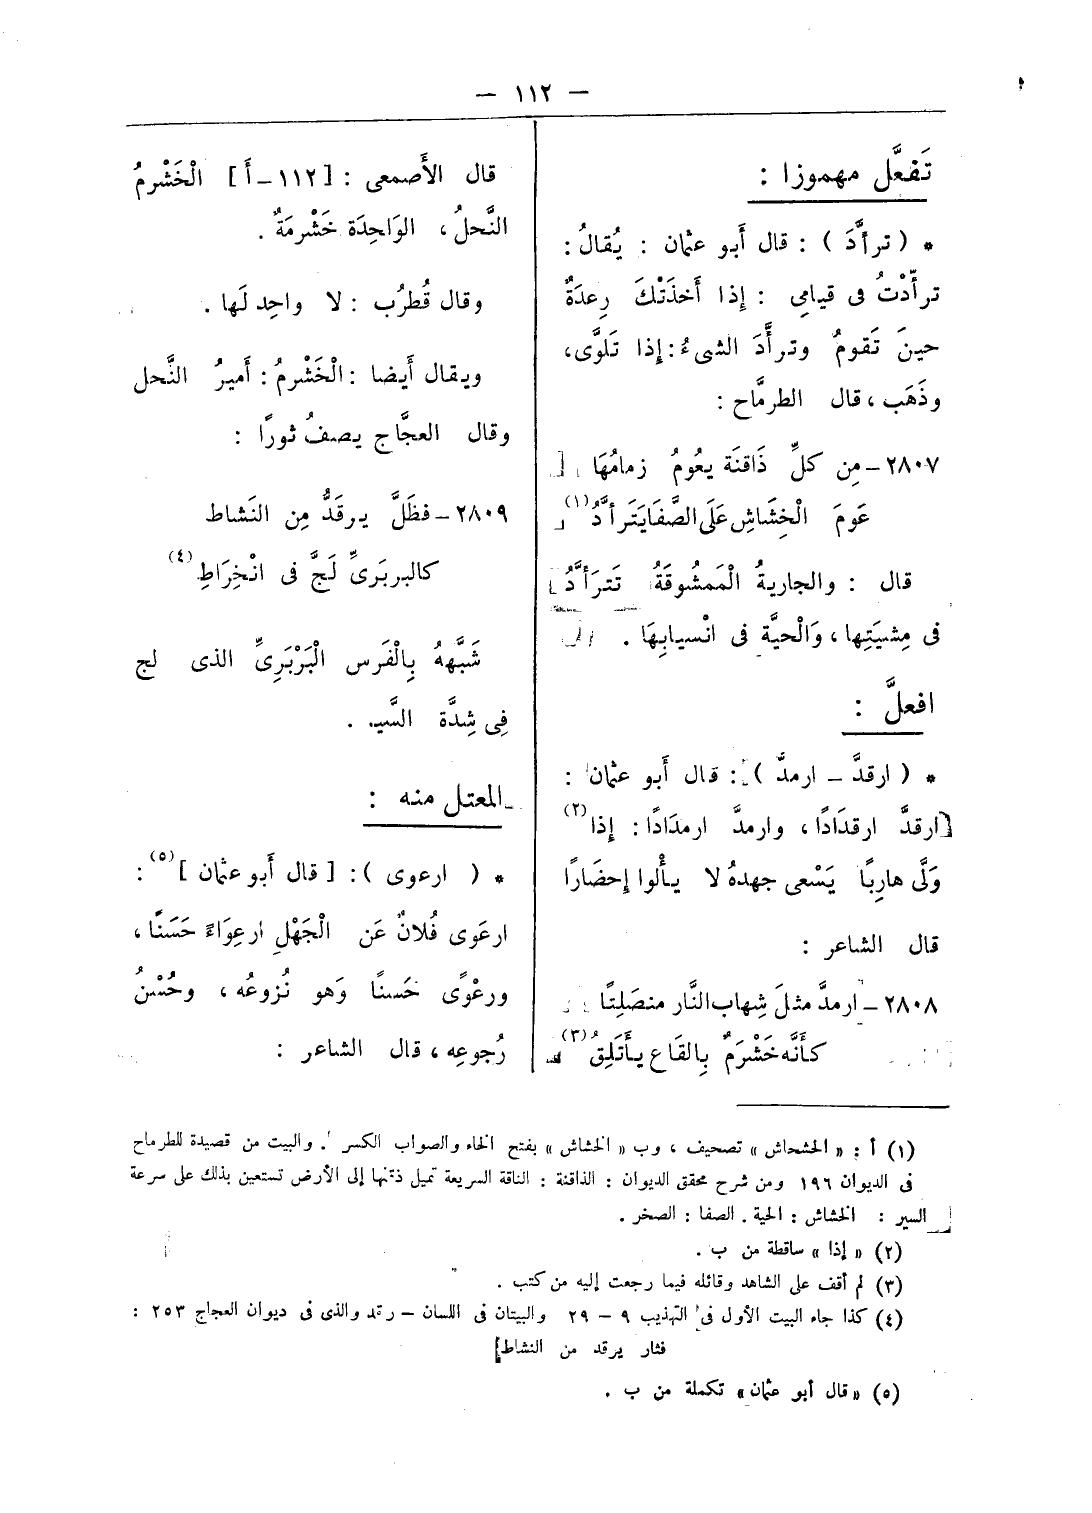 — ١١٢ —
تَفعَّل مهموزا :
* ( ترأَّدَ ) : قال أَبو عثمان : يُقالُ :
ترأَّدْتُ فى قيامِى : إِذا أَخذَتْكَ رِعدَةٌ
حينَ تَقومُ وترأَّدَ الشىءُ : إِذا تَلوَّى ،
وذَهَب ، قال الطرمَّاح :
٢٨٠٧ – مِن كلِّ ذَاقنَة يعُومُ زمامُهَا
عَومَ الْخِشَاشِ عَلَى الصَّفَا يَتَرأَّدُ (١)
قال : والجاريةُ الْمَمشُوقَةُ تَتَرَأَّدُ
فى مِشيَتِها ، وَالْحيَّة فى انْسيابِهَا .
افعلَّ :
* ( ارقدَّ – ارمدَّ ) : قال أَبو عثمان :
ارقدَّ ارقدَادًا ، وارمدَّ ارمدَادًا : إِذا (٢)
وَلَّى هارِبًا يَسْعى جهدهُ لا يأْلوا إِحضَارًا
قال الشاعر :
٢٨٠٨ – ارمدَّ مثلَ شِهاب النَّار منصَلِتًا
كأَنَّه خَشْرَمٌ بِالقَاع يأْتَلِقُ (٣)
قال الأَصمعى : [ ١١٢ – أَ ] الْخَشْرمُ
النَّحلُ ، الوَاحِدَة خَشْرمَةٌ .
وقال قُطرُب : لا واحِد لَها .
ويقال أَيضا : الْخَشْرمُ : أَميرُ النَّحل
وقال العجَّاج يصفُ ثورًا :
٢٨٠٩ – فظَلَّ يرقَدُّ مِن النَشاط
كالبربَرىِّ لَجَّ فى انْخِرَاطِ (٤)
شَبَّههُ بِالْفَرس الْبَرْبَرِىِّ الذى لج
فِى شِدَّة السَّير .
المعتل منه :
* ( ارعوى ) : [ قال أَبو عثمان ] (٥) :
ارعَوى فُلانٌ عَن الْجَهْلِ ارعِوَاءً حَسَنًا ،
ورعْوًى حَسنًا وَهو نُزوعُه ، وحُسْنُ
رُجوعِه ، قال الشاعر :
(١) أ : « الخشحاش » تصحيف ، وب « الخشاش » بفتح الخاء والصواب الكسر . والبيت من قصيدة للطرماح
فى الديوان ١٩٦ ومن شرح محقق الديوان : الذاقنة : الناقة السريعة تميل ذقنها إلى الأرض تستعين بذلك على سرعة
السير : الخشاش : الحية . الصفا : الصخر .
(٢) « إذا » ساقطة من ب .
(٣) لم أقف على الشاهد وقائله فيما رجعت إليه من كتب .
(٤) كذا جاء البيت الأول فى التهذيب ٩ – ٢٩ والبيتان فى اللسان – رقد والذى فى ديوان العجاج ٢٥٣ :
فثار يرقد من النشاط
(٥) « قال أبو عثمان » تكملة من ب .